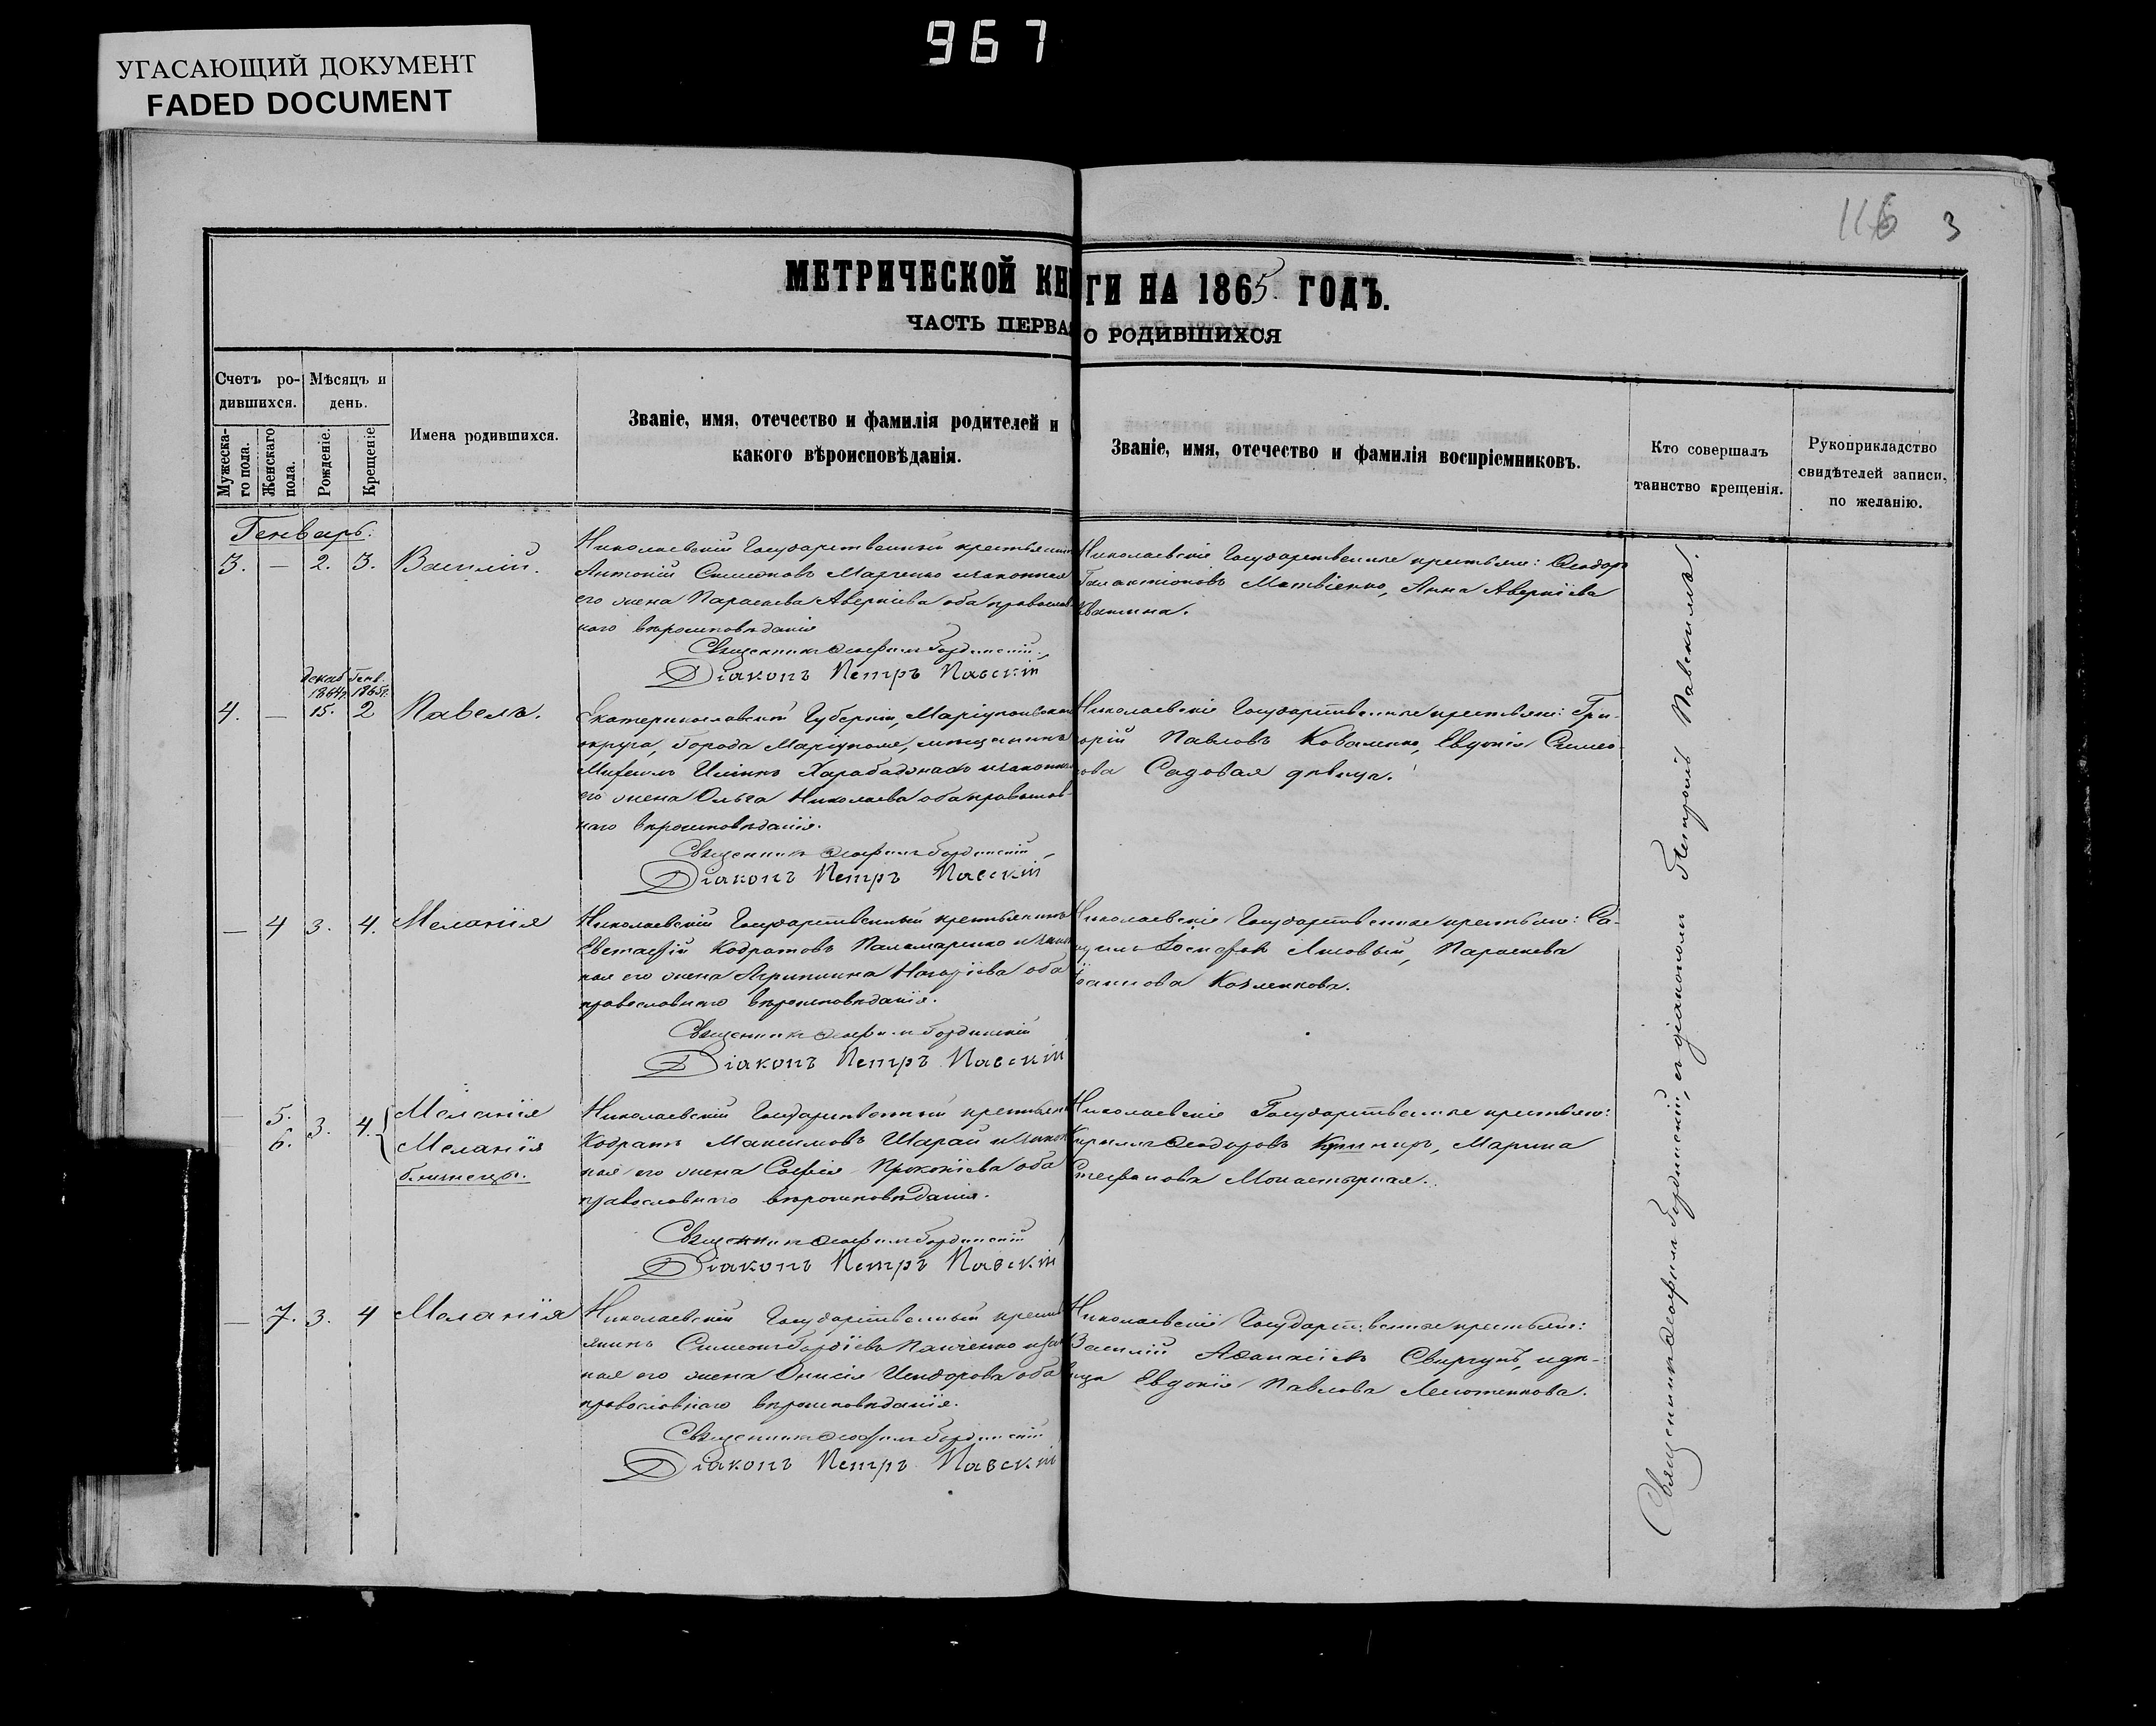 967
УГАСАЮЩИЙ ДОКУМЕНТ
FADED DOCUMENT
116 3
МЕТРИЧЕСКОЙ КНИГИ НА 1865 ГОДЪ.
ЧАСТЬ ПЕРВАЯ О РОДИВШИХСЯ
Счетъ ро-
дившихся.
Мѣсяцъ и
день.
Мужеска-
го пола.
Женскаго
пола.
Рожденіе.
Крещеніе
Имена родившихся.
Званіе, имя, отечество и фамилія родителей и
какого вѣроисповѣданія.
Званіе, имя, отечество и фамилія воспріемниковъ.
Кто совершалъ
таинство крещенія.
Рукоприкладство
свидѣтелей записи,
по желанію.
Генварь:
3. — 2. 3. Василій.
Николаевскій Государственный крестьянинъ
Антоній Симеоновъ Марченко и законная
его жена Параскева Аверкіева оба православ
наго вѣроисповѣданія
Священникъ
Діаконъ Петръ Павскій
Николаевскіе Государственные крестьяне: Ѳеодоръ
Галактіоновъ Матвіенко, Анна Аверкіева
Квашина.
декаб. Генв.
1864г. 1865г.
4. — 15. 2 Павелъ.
Екатеринославской Губерніи, Маріупольскаго
округа, города Маріуполя, мѣщанинъ
Михаилъ Ильинъ и законная
его жена Ольга Николаева оба православ-
наго вѣроисповѣданія.
Священникъ
Діаконъ Петръ Павскій
Николаевскіе Государственные крестьяне: Гри-
горій Павловъ Коваленко, Евдокія Симео-
нова Садовая дѣвица.
— 4 3. 4. Меланія
Николаевскій Государственный крестьянинъ
Евстафій Кодратовъ Паламаренко и закон
ная его жена Агрипина оба
православнаго вѣроисповѣданія.
Священникъ
Діаконъ Петръ Павскій
Николаевскіе Государственные крестьяне: Са-
Іосифовъ Лисовый, Параскева
Іоаннова Козленкова.
— 5. 3. 4. Меланія
— 6. Меланія
близнецы.
Николаевскій Государственный крестьянинъ
Кодратъ Максимовъ Шарай и закон
ная его жена Софія Прокопіева оба
православнаго вѣроисповѣданія.
Священникъ
Діаконъ Петръ Павскій
Николаевскіе Государственные крестьяне:
Кириллъ Ѳеодоровъ Кушниръ, Марина
Стефанова Монастырная.
— 7. 3. 4 Меланія
Николаевскій Государственный кресть
янинъ Симеонъ Панченко и закон
ная его жена Онисія Исидорова оба
православнаго вѣроисповѣданія.
Священникъ
Діаконъ Петръ Павскій
Николаевскіе Государственные крестьяне:
Василій Аѳанасіевъ Свиргунъ, и дѣ-
вица Евдокія Павлова
Священникъ съ діакономъ Петромъ Павскимъ.